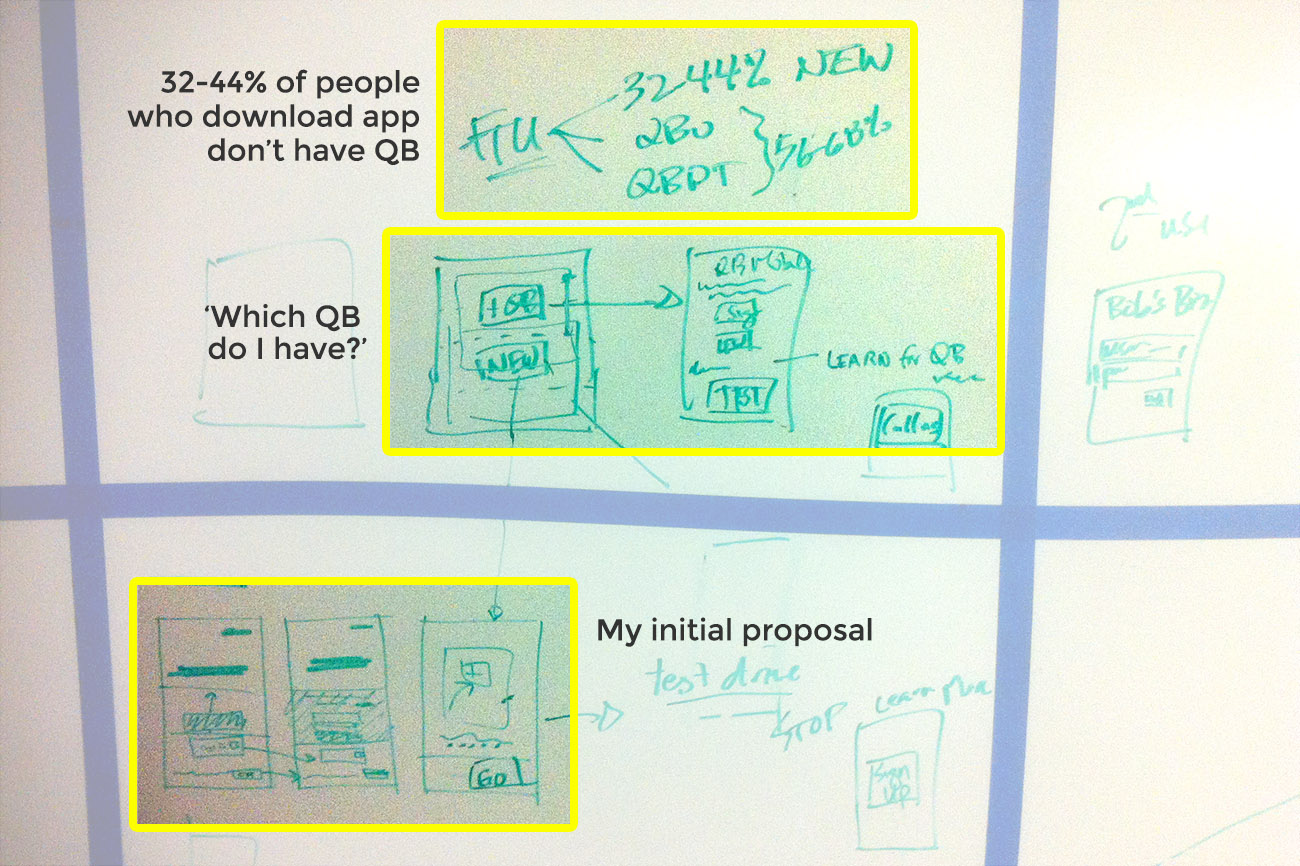 32-44% of people
who download app
don't have QB
FTU
32-44% NEW
QBO
QBDT
56-68%
'Which QB
do I have?'
+QB
NEW
LEARN for QB
TEST
2nd
use
Bob's
My initial proposal
GO
test drive
STOP
Learn More
Sign
up